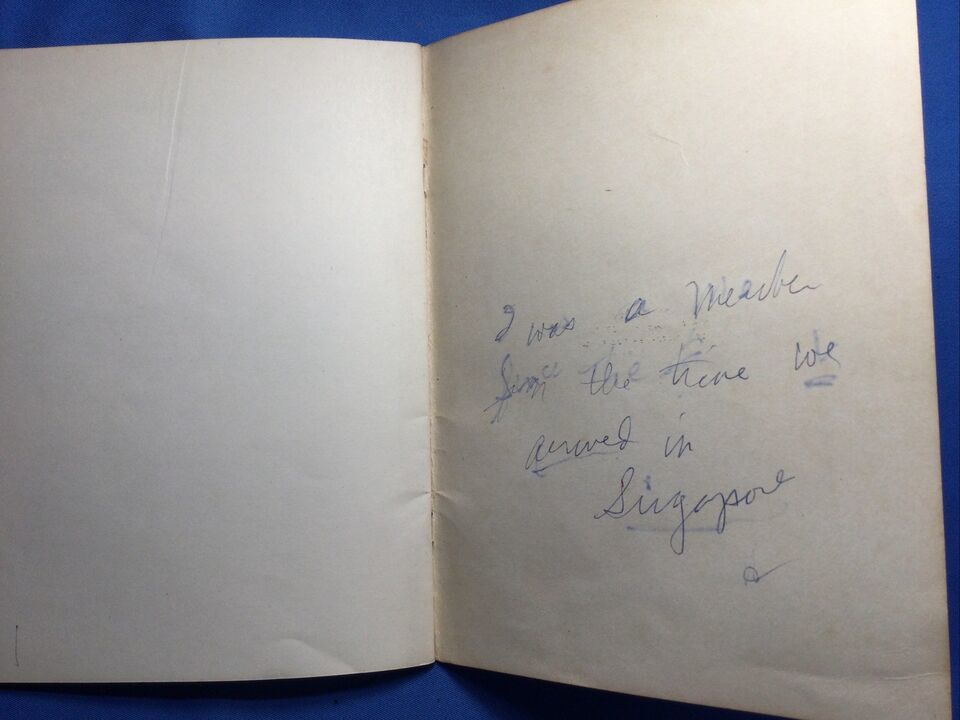 I was a Member
the time we
arrived in
Singapore